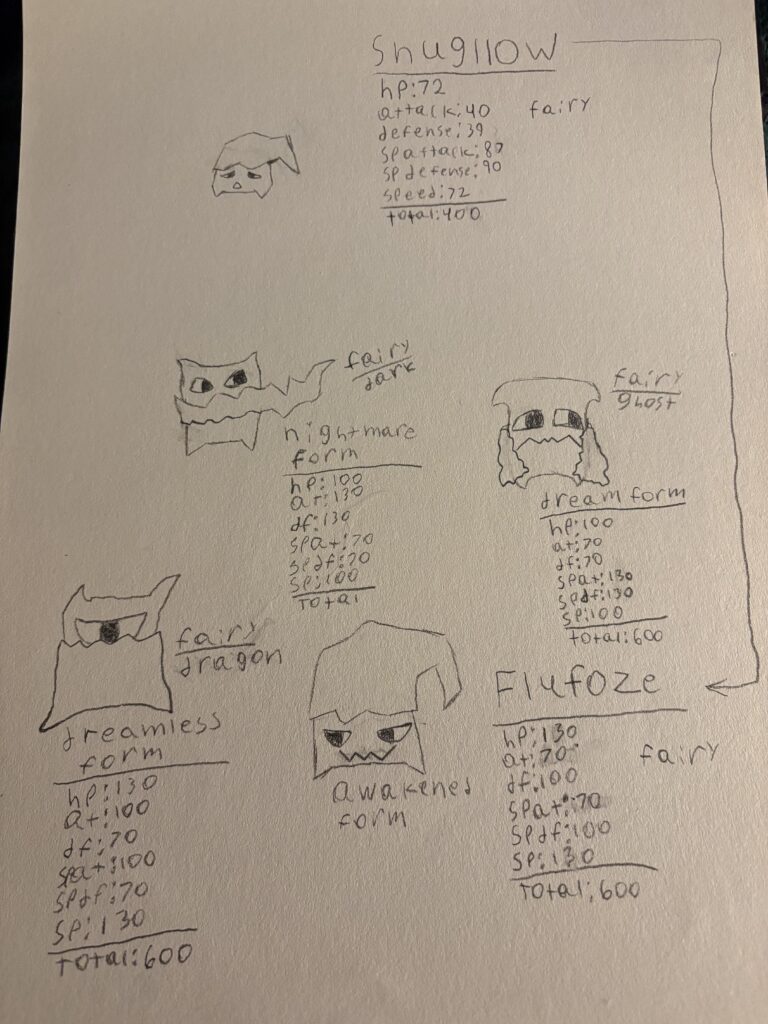 Snugllow
hp:72
attack:40
fairy
defense:39
spattack:87
spdefense:90
speed:72
total:400
fairy
dark
nightmare
form
hp:100
at:130
df:130
spat:70
spdf:70
sp:100
total
fairy
ghost
dream form
hp:100
at:70
df:70
spat:130
spdf:130
sp:100
total:600
fairy
dragon
dreamless
form
hp:130
at:100
df:70
spat:100
spdf:70
sp:130
total:600
awakened
form
Flufoze
hp:130
at:70
fairy
df:100
spat:70
spdf:100
sp:130
total:600